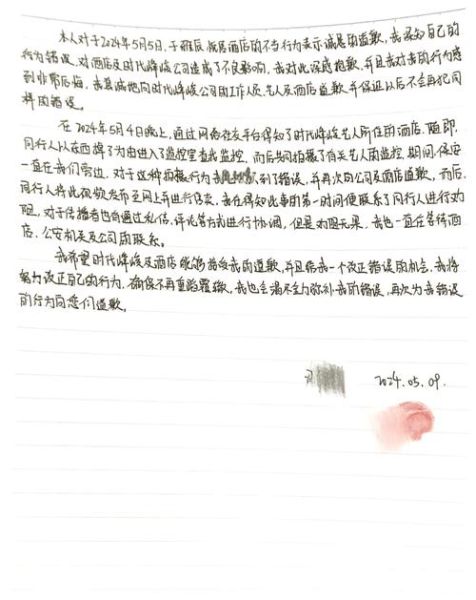 本人对于2024年5月5日,于雅辰悦居酒店的不当行为表示诚恳的道歉,我深知自己的
行为错误,对酒店及时代峰峻公司造成了不良影响,我对此深感抱歉,并且我对我的行为感
到非常后悔,我真诚地向时代峰峻公司的工作人员、艺人及酒店道歉,并保证以后不会再犯同
样的错误。
在2024年5月4日晚上,通过网络社交平台得知了时代峰峻艺人所住的酒店,随即,
同行人以东西掉了为由进入了监控室查看监控,而后共同拍摄了有关艺人的监控,期间,保安
一直在我们旁边,对于这种拍摄行为我 到了错误,并再次向公司及酒店道歉,而后,
同行人将此视频发布至网上并进行售卖,我在得知此事的第一时间便联系了同行人进行劝
阻,对于传播者也有通过私信、评论等方式进行协调,但是劝阻无果,我也一直在等待酒
店、公安机关及公司的联系。
我希望时代峰峻及酒店能够接受我的道歉,并且给我一个改正错误的机会,我将
努力改正自己的行为,确保不再重蹈覆辙,我也会竭尽全力弥补我的错误,再次为我错误
的行为向您们道歉。
2024.05.09.